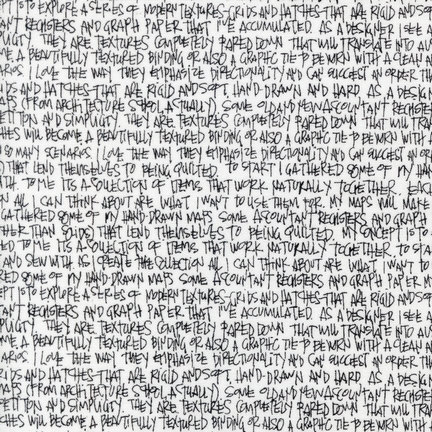 PT IS TO EXPLORE A SERIES OF MODERN TEXTURES-GRIDS AND HATCHES THAT ARE RIGID AND SOF
TANT REGISTERS AND GRAPH PAPER THAT I'VE ACCUMULATED AS A DESIGNER I SEE A
PLICITY THEY ARE TEXTURES COMPLETELY PARED DOWN THAT WILL TRANSLATE INTO AU
ME A BEAUTIFULLY TEXTURED BINDING OR ALSO A GRAPHIC TIE TO BE WORN WITH A CLEAN A
ARIOS I LOVE THE WAY THEY EMPHASIZE DIRECTIONALITY AND CAN SUGGEST AN ORDER TH
IDS AND HATCHES THAT ARE RIGID AND SOFT, HAND-DRAWN AND HARD AS A DESIGN
MAPS (FROM ARCHITECTURE SCHOOL ACTUALLY) SOME OLD AND NEW ACCOUNTANT REGISTERS
ETITION AND SIMPLICITY THEY ARE TEXTURES COMPLETELY PARED DOWN THAT WILL TRAN
CHES WILL BECOME A BEAUTIFULLY TEXTURED BINDING OR ALSO A GRAPHIC TIE TO BE WORN WITH A
SO MANY SCENARIOS I LOVE THE WAY THEY EMPHASIZE DIRECTIONALITY AND CAN SUGGEST AN OR
) THAT LEND THEMSELVES TO BEING QUILTED. TO START I GATHERED SOME OF MY HAND-
WITH TO ME ITS A COLLECTION OF ITEMS THAT WORK NATURALLY TOGETHER EACH
N ALL I CAN THINK ABOUT ARE WHAT I WANT TO USE THEM FOR. MY MAPS WILL MAKE
GATHERED SOME OF MY HAND-DRAWN MAPS SOME ACCOUNTANT REGISTERS AND GRAPH
HER THAN SOLIDS) THAT LEND THEMSELVES TO BEING QUILTED. MY CONCEPT IS TO
ED TO ME ITS A COLLECTION OF ITEMS THAT WORK NATURALLY TOGETHER. TO STA
AND SEW WITH AS I CREATE THE COLLECTION ALL I CAN THINK ABOUT ARE WHAT I WANT TO
RED SOME OF MY HAND-DRAWN MAPS SOME ACCOUNTANT REGISTERS AND GRAPH PAPER M
PT IS TO EXPLORE A SERIES OF MODERN TEXTURES-GRIDS AND HATCHES THAT ARE RIGID AND SOF
TANT REGISTERS AND GRAPH PAPER THAT I'VE ACCUMULATED AS A DESIGNER I SEE A
PLICITY THEY ARE TEXTURES COMPLETELY PARED DOWN THAT WILL TRANSLATE INTO AU
ME A BEAUTIFULLY TEXTURED BINDING OR ALSO A GRAPHIC TIE TO BE WORN WITH A CLEAN A
ARIOS I LOVE THE WAY THEY EMPHASIZE DIRECTIONALITY AND CAN SUGGEST AN ORDER TH
RIDS AND HATCHES THAT ARE RIGID AND SOFT, HAND-DRAWN AND HARD AS A DESIGN
MAPS (FROM ARCHITECTURE SCHOOL ACTUALLY) SOME OLD AND NEW ACCOUNTANT REGISTERS
ETITION AND SIMPLICITY THEY ARE TEXTURES COMPLETELY PARED DOWN THAT WILL TRAN
CHES WILL BECOME A BEAUTIFULLY TEXTURED BINDING OR ALSO A GRAPHIC TIE TO BE WORN WITH A